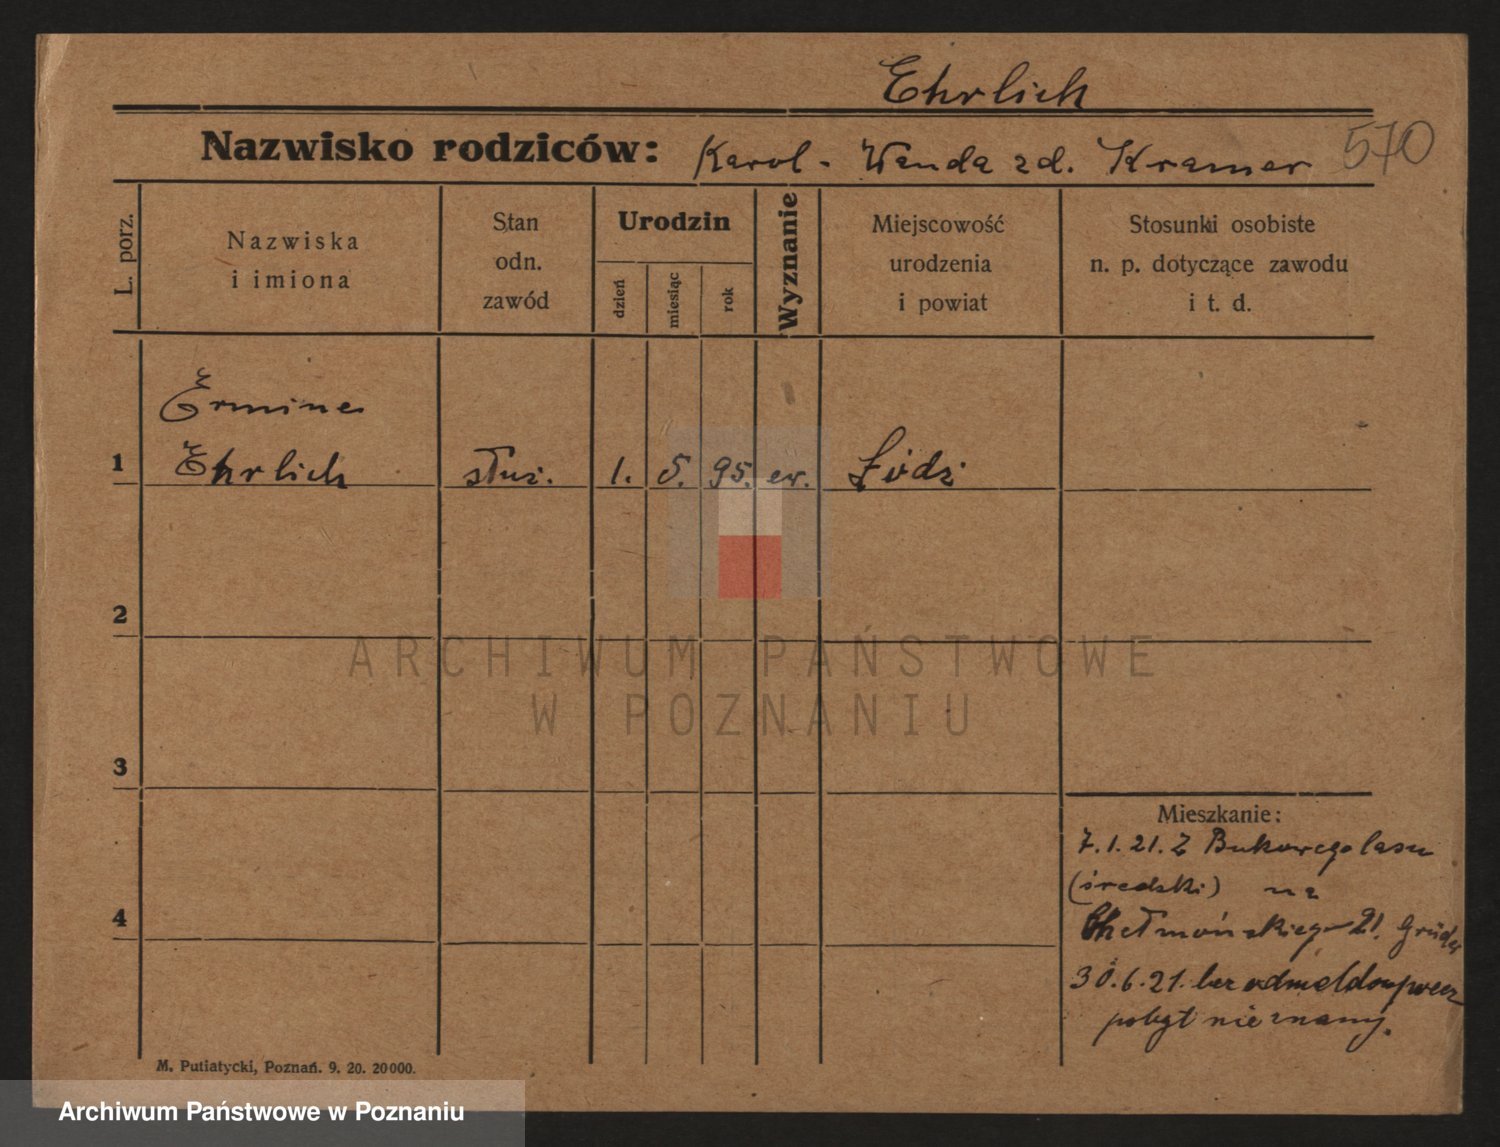 Ehrlich
Nazwisko rodziców: Karol - Wanda zd. Kramer 570
L. porz.
Nazwiska
i imiona
Stan
odn.
zawód
Urodzin
dzień
miesiąc
rok
Wyznanie
Miejscowość
urodzenia
i powiat
Stosunki osobiste
n. p. dotyczące zawodu
i t. d.
Ermine
1 Ehrlich służ. 1. 5. 95. ew. Łódź
2
ARCHIWUM PAŃSTWOWE
W POZNANIU
3
Mieszkanie:
7.1.21. Z Bukowego lasu
(średzki) na
4
Chełmońskiego 21.
30.6.21. bez
pobyt nieznany.
M. Putiatycki, Poznań. 9. 20. 20000.
Archiwum Państwowe w Poznaniu